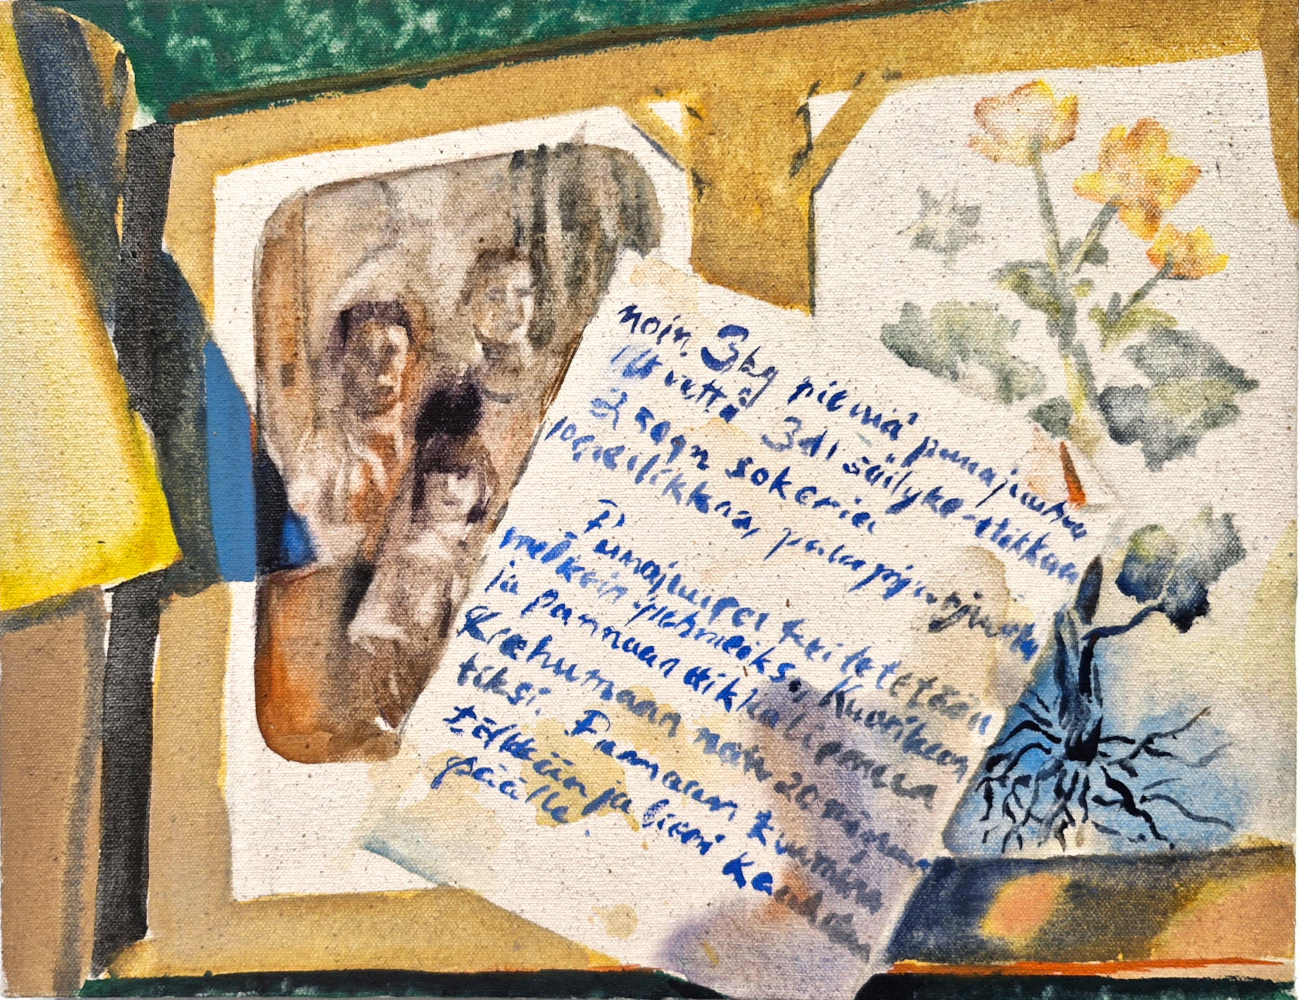 noin. 3kg pieniä punajuuria
1 l vettä 3 dl säilyke-etikkaa
2 sokeria
punajuuren
Punajuuret keitetään
melkein kypsiksi. Kuoritaan
ja pannaan etikkaliemeen
kiehumaan noin 20 minuu
tiksi. Pannaan kuumina
tölkkiin ja liemi kaadetaan
päälle.